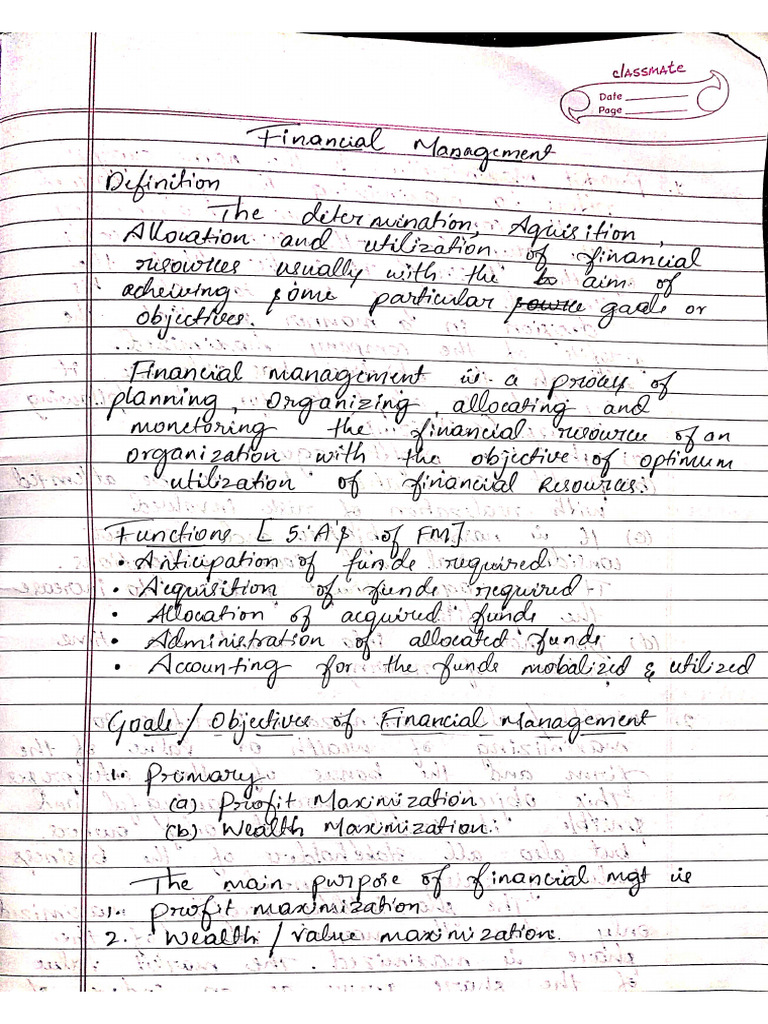 classmate
Date
Page
Financial Management
Definition
The determination, Aquisition,
Allocation and utilization of financial
resources usually with the to aim of
acheiving some particular source goals or
objectives.
Financial management is a process of
planning, organizing, allocating and
monetoring the financial resource of an
organization with the objective of optimum
utilization of financial Resources.
Functions [ 5 A's of FM]
• Anticipation of funds required
• Acquisition of funds required
• Allocation of acquired funds
• Administration of allocated funds
• Accounting for the funds mobalized & utilized
Goals / Objectives of Financial Management
1. Primary
(a) Profit Maximization
(b) Wealth Maximization.
The main purpose of financial mgt is
1. Profit maximization
2. Wealth / value maximization.